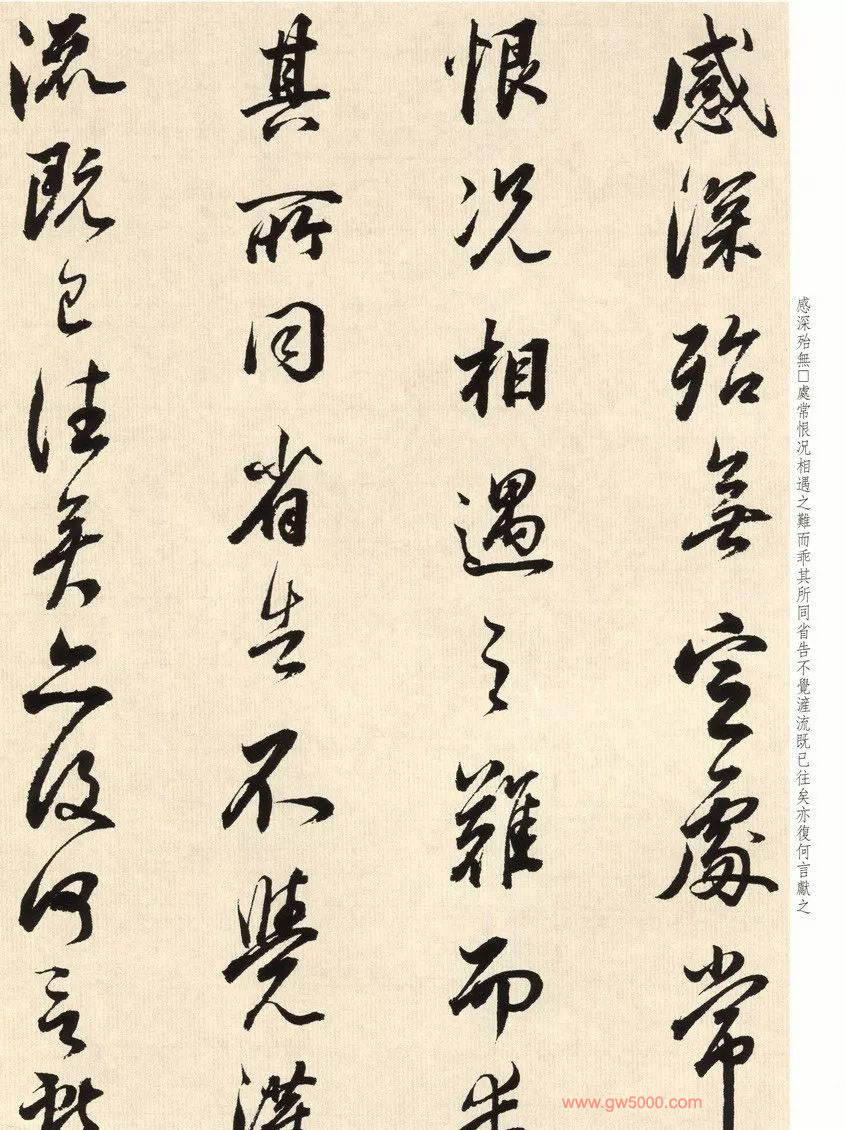 感深殆無宣處常
恨况相遇之難而乖
其所同省告不覺
流既已往矣亦復何言獻
感深殆無□處常恨况相遇之難而乖其所同省告不覺滻流既已往矣亦復何言獻之
www.gw5000.com